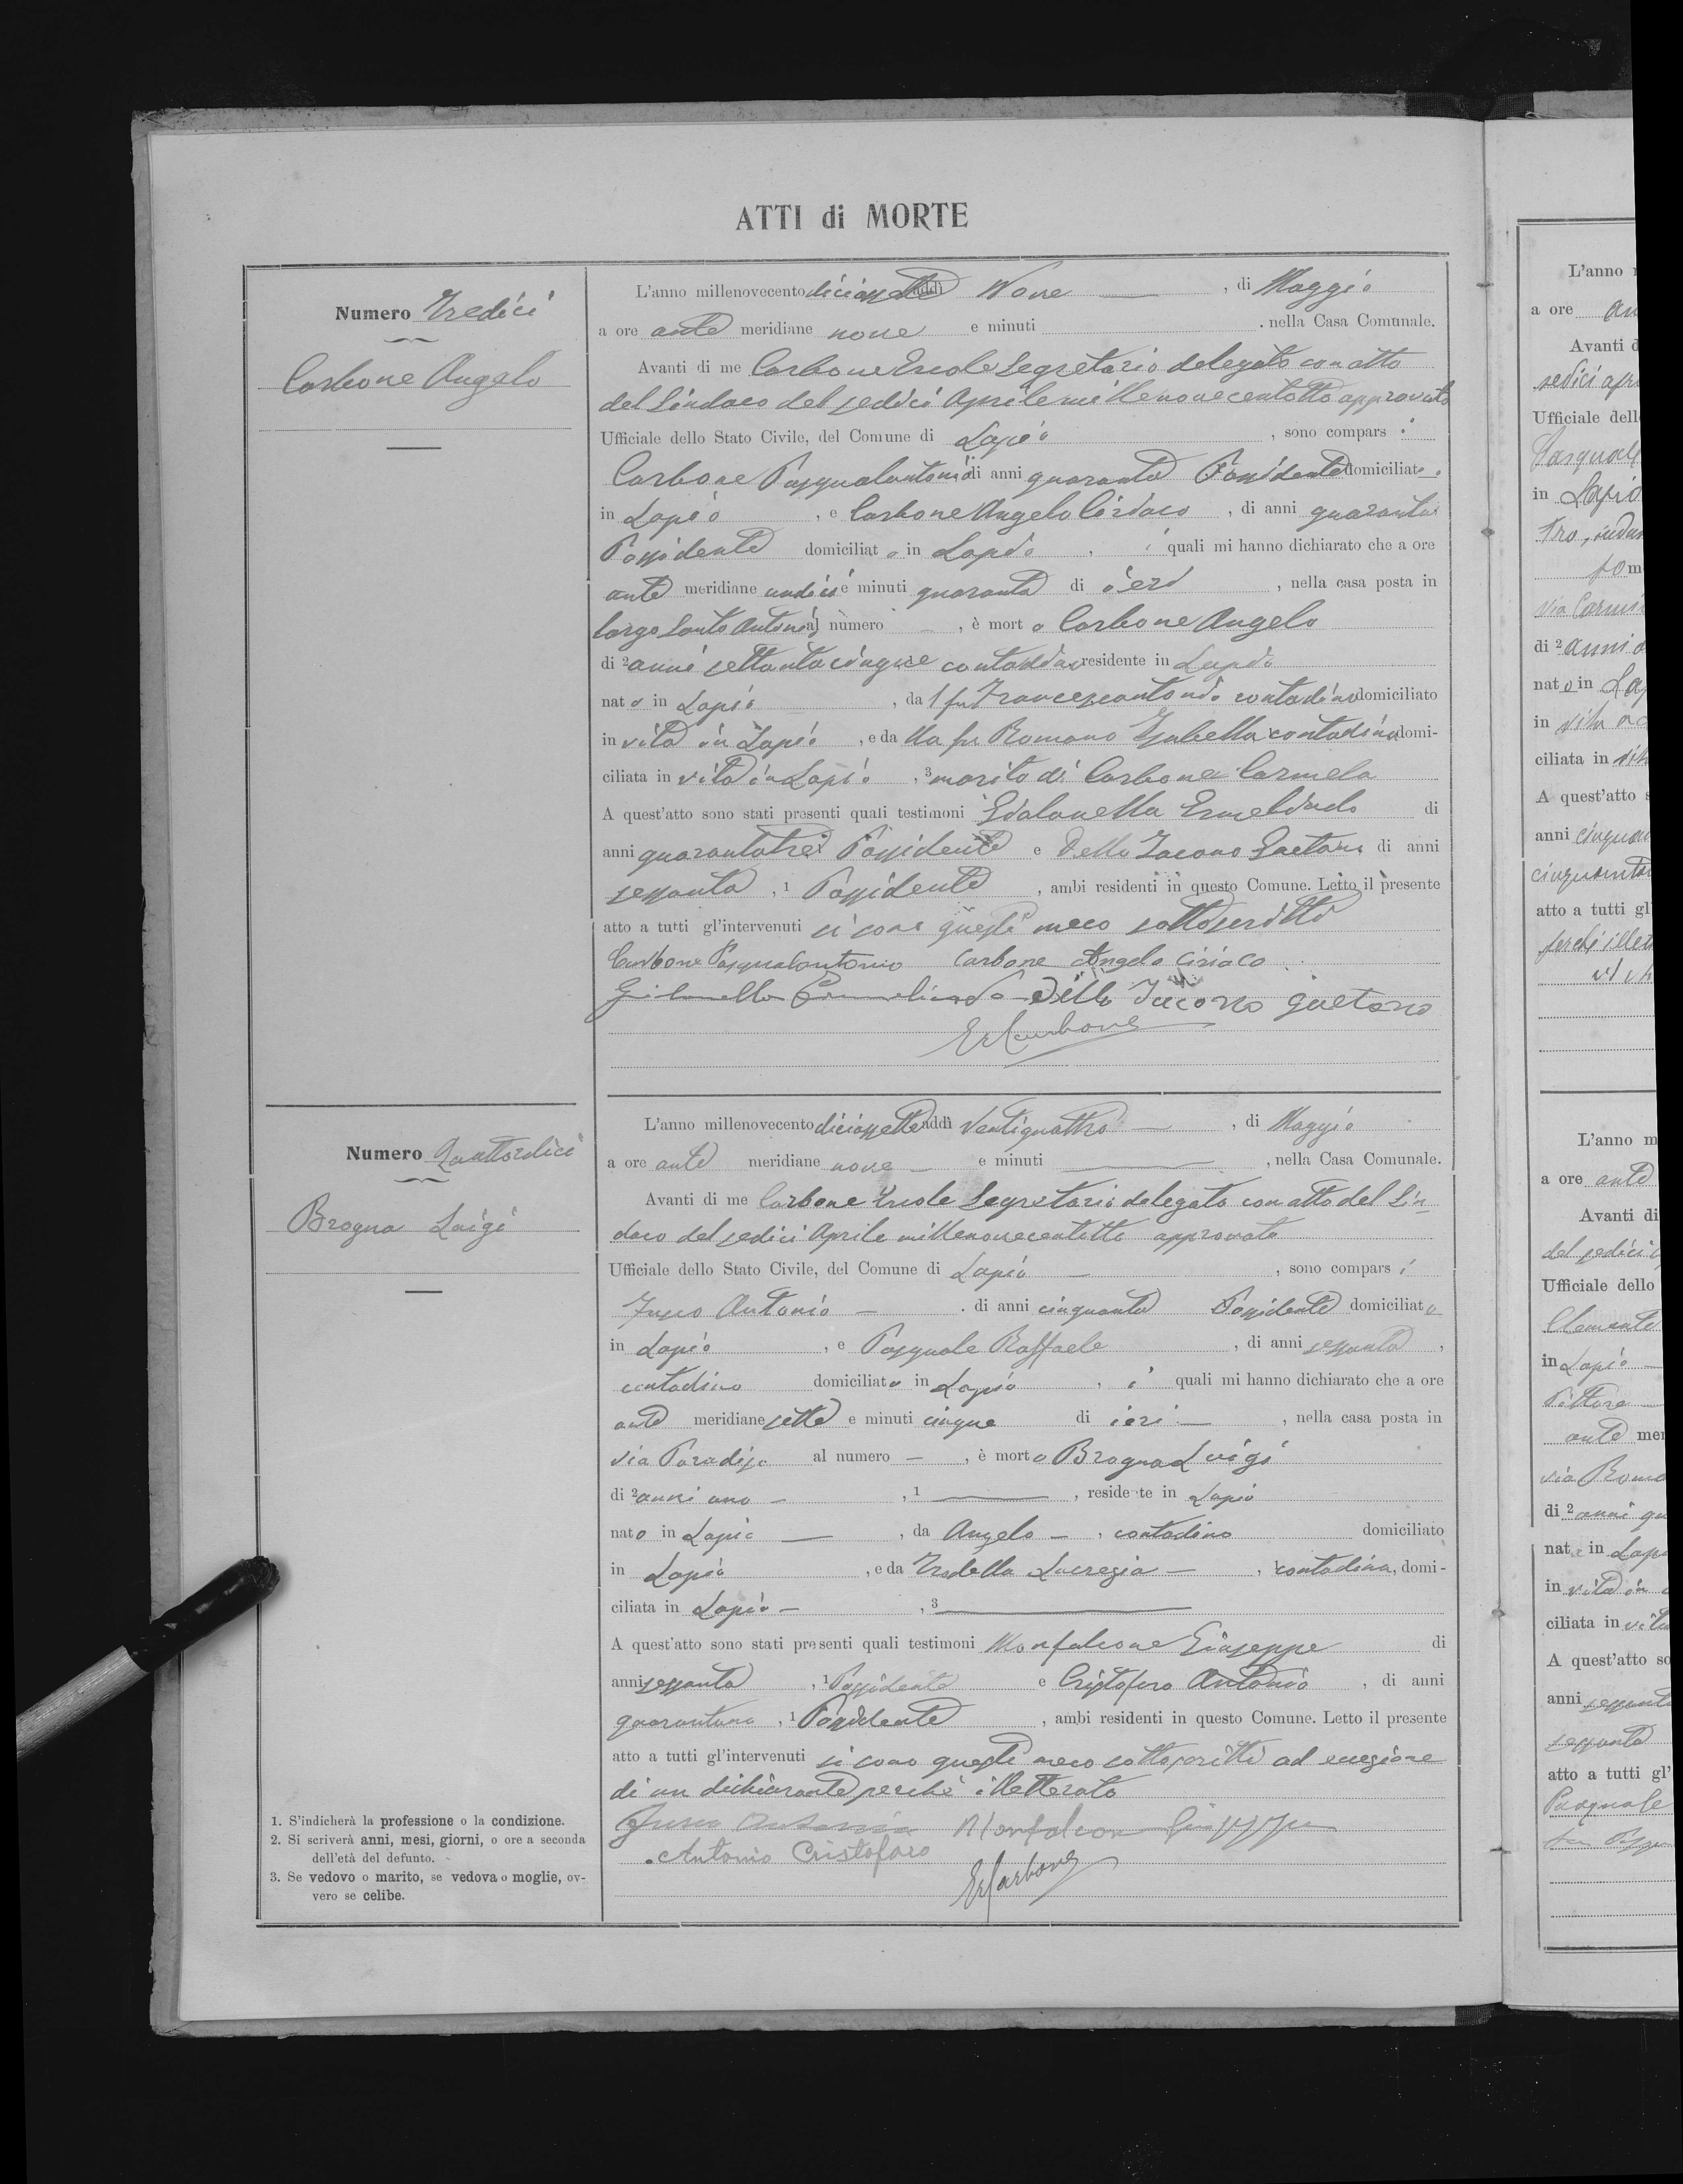 ATTI di MORTE
Numero Tredici
Carbone Angelo
L'anno millenovecento diciassette addì Nove , di Maggio
a ore ante meridiane nove e minuti , nella Casa Comunale.
Avanti di me Carbone Ercole Segretario delegato con atto
del Sindaco del sedici Aprile millenovecentotto approvato
Ufficiale dello Stato Civile, del Comune di Lapio , sono compars i
Carbone Pasqualantonio di anni quaranta Possidente domiciliato
in Lapio , e Carbone Angelo Ciriaco , di anni quaranta
Possidente domiciliat o in Lapio , i quali mi hanno dichiarato che a ore
ante meridiane undici e minuti quaranta di ieri , nella casa posta in
largo Santo Antonio al numero — , è mort o Carbone Angelo
di 2 anni settantacinque contadino residente in Lapio
nat o in Lapio , da l fu Francescantonio contadino domiciliato
in vita in Lapio , e da lla fu Romano Isabella contadina domi-
ciliata in vita in Lapio , 3 marito di Carbone Carmela
A quest'atto sono stati presenti quali testimoni Gialonella Ermelindo di
anni quarantatre Possidente e Dello Iacono Gaetano di anni
sessanta , 1 Possidente , ambi residenti in questo Comune. Letto il presente
atto a tutti gl'intervenuti si sono questi meco sottoscritti
Carbone Pasqualantonio Carbone Angelo Ciriaco
Ermelindo Dello Iacono Gaetano
Er Carbone
Numero Quattordici
Brogna Luigi
L'anno millenovecento diciassette addì Ventiquattro — , di Maggio
a ore ante meridiane nove — e minuti — , nella Casa Comunale.
Avanti di me Carbone Ercole Segretario delegato con atto del Sin-
daco del sedici Aprile millenovecentotto approvato
Ufficiale dello Stato Civile, del Comune di Lapio — , sono compars i
Fusco Antonio — , di anni cinquanta Possidente domiciliato
in Lapio , e Pasquale Raffaele , di anni sessanta ,
contadino domiciliato in Lapio , i quali mi hanno dichiarato che a ore
ante meridiane sette e minuti cinque di ieri — , nella casa posta in
via Paradiso al numero — , è mort o Brogna Luigi
di 2 anni uno — , 1 — , residente in Lapio
nato in Lapio — , da Angelo — , contadino domiciliato
in Lapio , e da Lucrezia — , contadina, domi-
ciliata in Lapio — , 3 —
A quest'atto sono stati presenti quali testimoni Monfalcone Giuseppe di
anni sessanta , 1 Possidente e Cristofaro Antonio , di anni
quarantuno , 1 Possidente , ambi residenti in questo Comune. Letto il presente
atto a tutti gl'intervenuti si sono questi meco sottoscritti ad eccezione
di un dichiarante perchè illetterato
Fusco Antonio Monfalcone Giuseppe
Antonio Cristofaro
Er Carbone
1. S'indicherà la professione o la condizione.
2. Si scriverà anni, mesi, giorni, o ore a seconda
dell'età del defunto.
3. Se vedovo o marito, se vedova o moglie, ov-
vero se celibe.
L'anno
a ore an
Avanti d
sedici apr
Ufficiale dell
Pasquale
in Lapio
via Carmi
di 2 anni
nat o in La
in vita
ciliata in vit
A quest'atto s
anni cinquan
cinquanta
atto a tutti gl'
perchè illet
L'anno m
a ore ante
Avanti di
del sedici
Ufficiale dello
Clemente
in Lapio —
ante mer
via Roma
di 2 anni qu
nat in Lapi
in vita in
ciliata in vita
A quest'atto so
anni sessant
sessanta
atto a tutti gl'
Pasquale